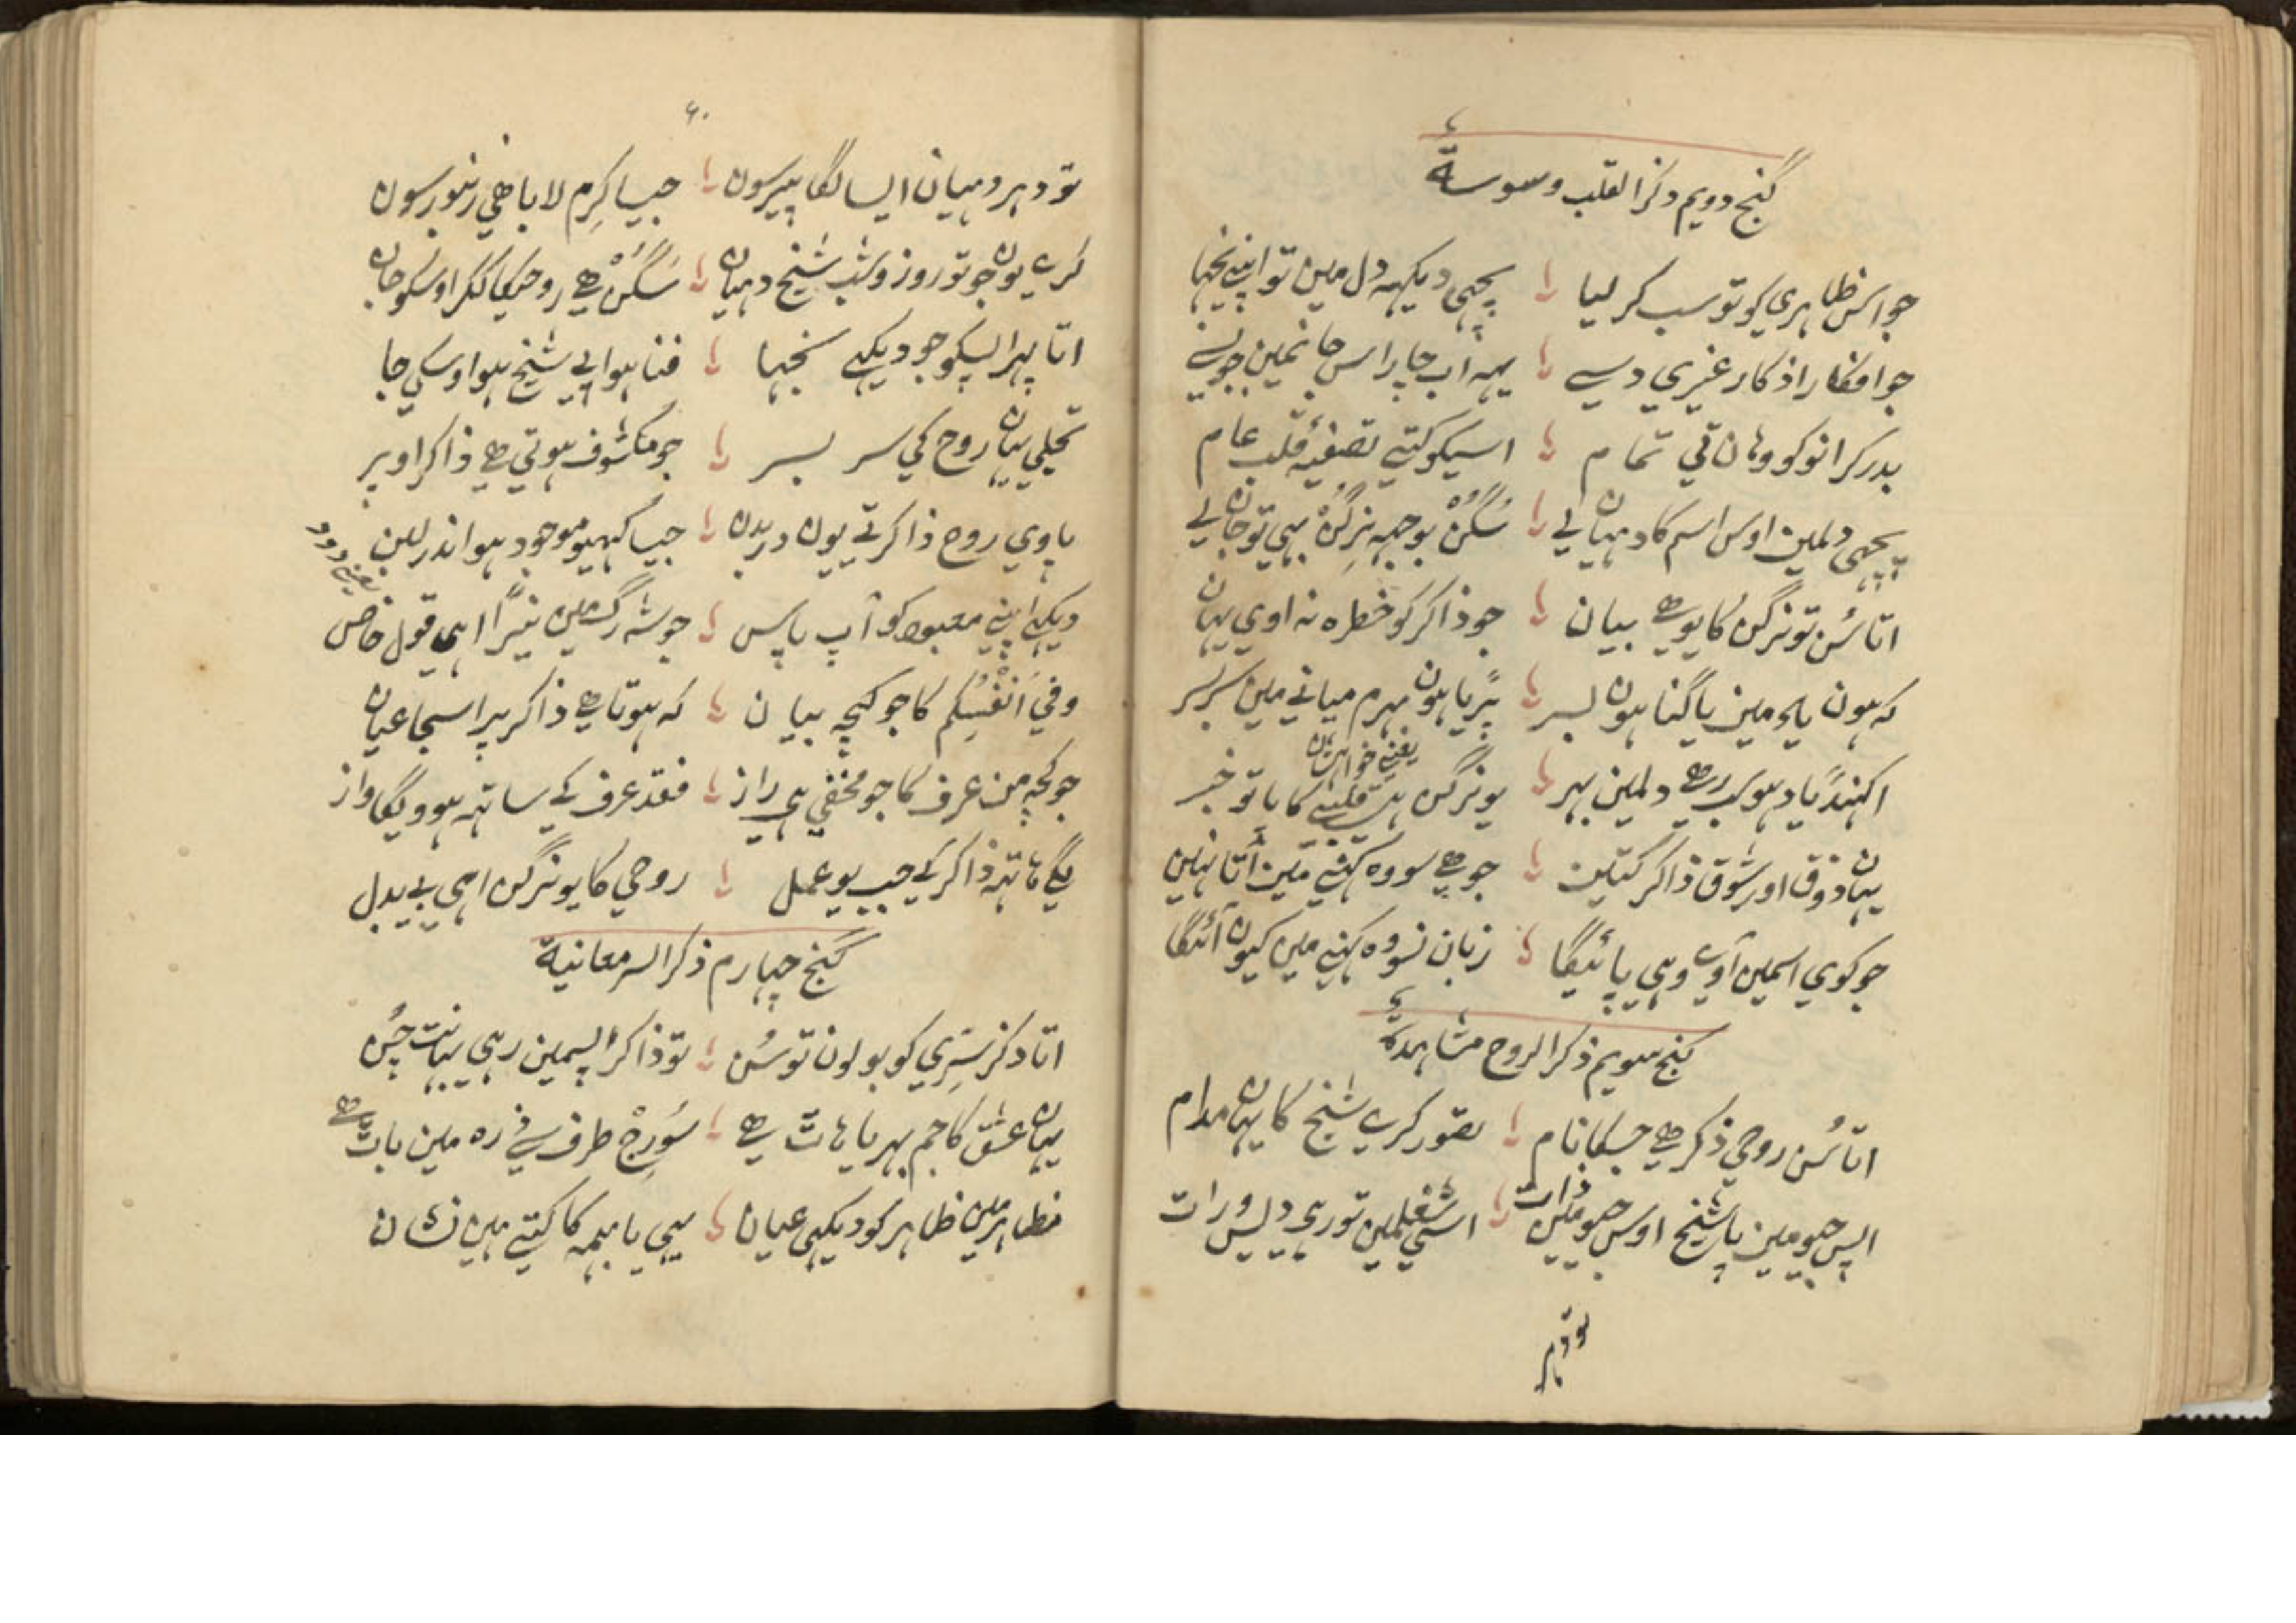 گنج دویم ذکر القلب وسوسة
جو اس ظاہری کو تو سب کر لیا پچھی دیکھہ دل میں تو اپنے
جو افکار اذکار غیری دسے یہہ اب جاپ اس جا نمین
بدر کر انوکو وہاں تی تمام اسیکو کتے تصفیۂ قلب عام
پچھی دلمین اوس اسم کا دہیان لے سگُن بوجھہ نِرگُن بہی تو جان لے
اتا سُن تو نرگن کا یو ھے بیان جو ذاکر کو خطرہ نہ اوی یہان
کہ ہون یاد مین یا گنا ہون بسر پڑیا ہون بہرم میانے مین سربسر
اکھنڈ یاد ہو رھے دلمین بہر یو نرگن ہے قلبی کا پا تو خبر
یعنے
یہان ذوق اور شوق ذاکر کتین جو ھے سو وہ کہنے مین اتا نہین
جو کوی اسمین آوے وہی پائیگا زبان سو وہ کہنے مین کیون آئیگا
گنج سویم ذکر الروح مشاہدہ
اتا سُن روحی ذکر ھے جسکا نام تصور کرے شیخ کا یہان مدام
اپس جیو مین یا شیخ اوس جیو مین ذات اسی شغلمین تو رہی دیس و رات
تو دہر
۶۰
تو دہر دہیان ایسا لگا پیر سون جیسا کرم لا یا ھی زنبور سون
کرے یون جو تو روز و شب شیخ دہیان سگُن ھے روحیکا ککر اوسکو جان
اتا پہر اپسکو جو دیکہے نجہا فنا ہو اپی شیخ ہو اوسکی جا
تجلی یہان روح کی سر بسر جو مکشوف ہوتی ھے ذاکر اوپر
پاوی روح ذاکر تے یون در بدن جیسا گہیو موجود ہو اندر لبن
یعنے دودہ
دیکہے اپنے معبود کو آپ پاس جو شہ رگ مین نیڑا اہی قول خاص
وفي اَنْفُسِكُم کا جو کچہ بیان کہ ہوتا ھے ذاکر پر اسجا عیان
جو کچہ من عرف کا جو مخفی ہی راز فقد عرف کے ساتہ ہوویگا واز
لگے ہاتہہ ذاکر کے جب یو عمل روحی کا یو نرگن اہی بے بدل
گنج چہارم ذکر السر معانیة
اتا ذکر سِرّی کو بولون تو سُن تو ذاکر اپسمین رہی چُن
یہان عشق کا جم بہریا ہاٹ ھے سُورج طرف سے ذرہ مین باٹ ھے
مظاہر مین ظاہر کو دیکہی عیان یہی با ہمہ کا کتے ہین نشان